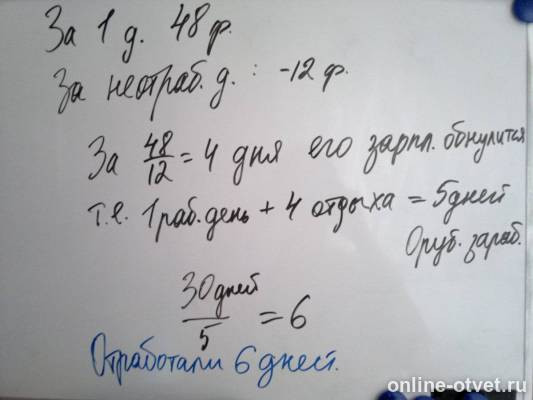 За 1 д. 48 р.
За неотраб. д. : -12 р.
За 48/12 = 4 дня его зарпл. обнулится
т.е. 1 раб. день + 4 отдыха = 5 дней
0 руб. зараб.
30 дней/5 = 6
Отработали 6 дней.
online-otvet.ru